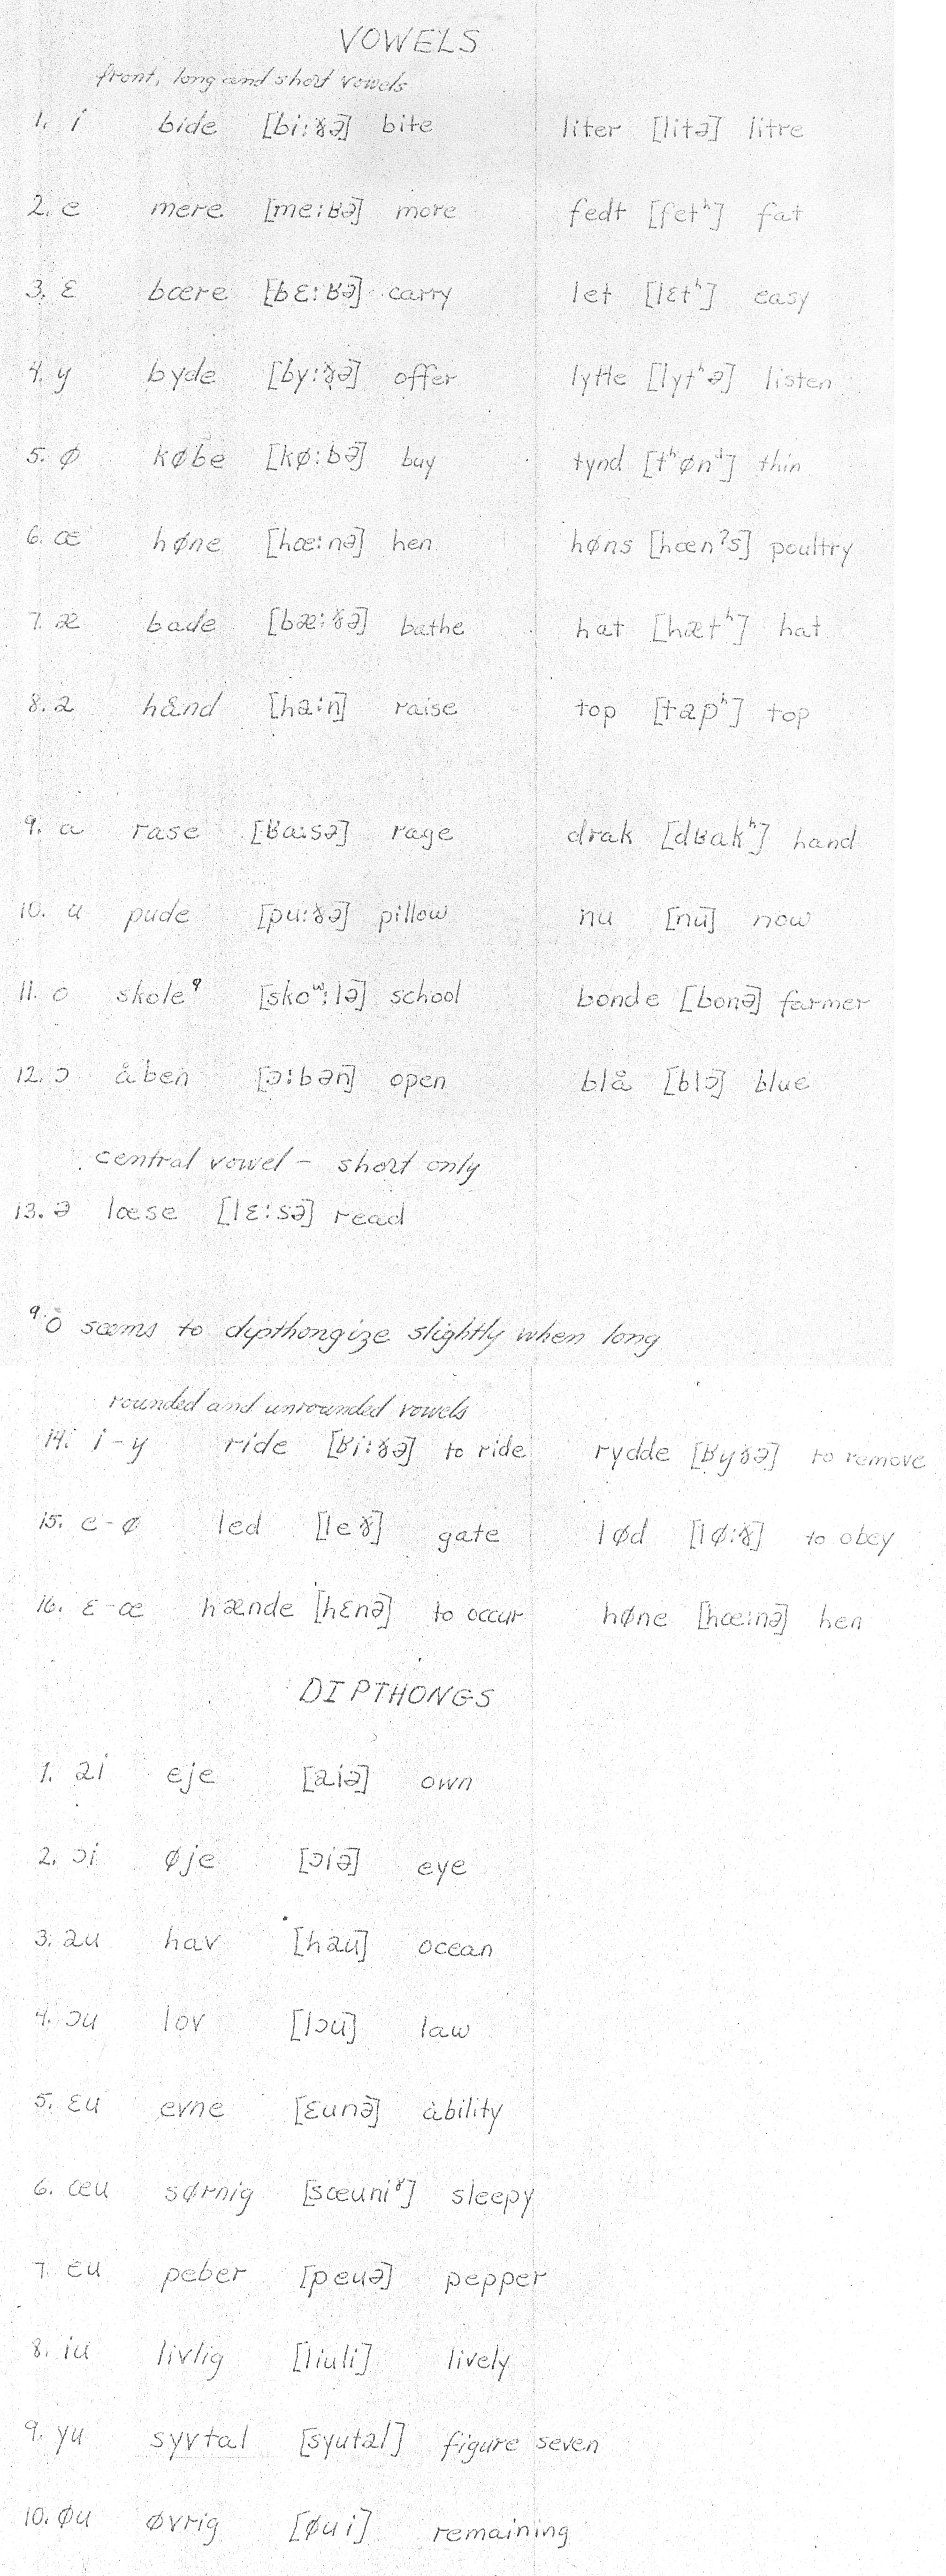 VOWELS
front, long and short vowels
1. i bide [bi:ɤə] bite liter [litə] litre
2. e mere [me:ʁə] more fedt [fetʰ] fat
3. ɛ bære [bɛ:ʁə] carry let [lɛtʰ] easy
4. y byde [by:ɤə] offer lytte [lytʰə] listen
5. ø købe [kø:bə] buy tynd [tʰønᵈ] thin
6. œ høne [hœ:nə] hen høns [hœnˀs] poultry
7. æ bade [bæ:ɤə] bathe hat [hætʰ] hat
8. a hånd [ha:n] raise top [tapʰ] top
9. ɑ rase [ʁɑ:sə] rage drak [dʁɑkʰ] hand
10. u pude [pu:ɤə] pillow nu [nu] now
11. o skole⁹ [skoʷ:lə] school bonde [bonə] farmer
12. ɔ åben [ɔ:bən] open blå [blɔ] blue
central vowel – short only
13. ə læse [lɛ:sə] read
⁹ o seems to dipthongize slightly when long
rounded and unrounded vowels
14. i-y ride [ʁi:ɤə] to ride rydde [ʁyɤə] to remove
15. e-ø led [leɤ] gate lød [lø:ɤ] to obey
16. ɛ-œ hænde [hɛnə] to occur høne [hœ:nə] hen
DIPTHONGS
1. ai eje [aiə] own
2. ɔi øje [ɔiə] eye
3. au hav [hau] ocean
4. ɔu lov [lɔu] law
5. ɛu evne [ɛunə] ability
6. œu sørnig [sœuniˠ] sleepy
7. eu peber [peuə] pepper
8. iu livlig [liuli] lively
9. yu syvtal [syutal] figure seven
10. øu øvrig [øui] remaining